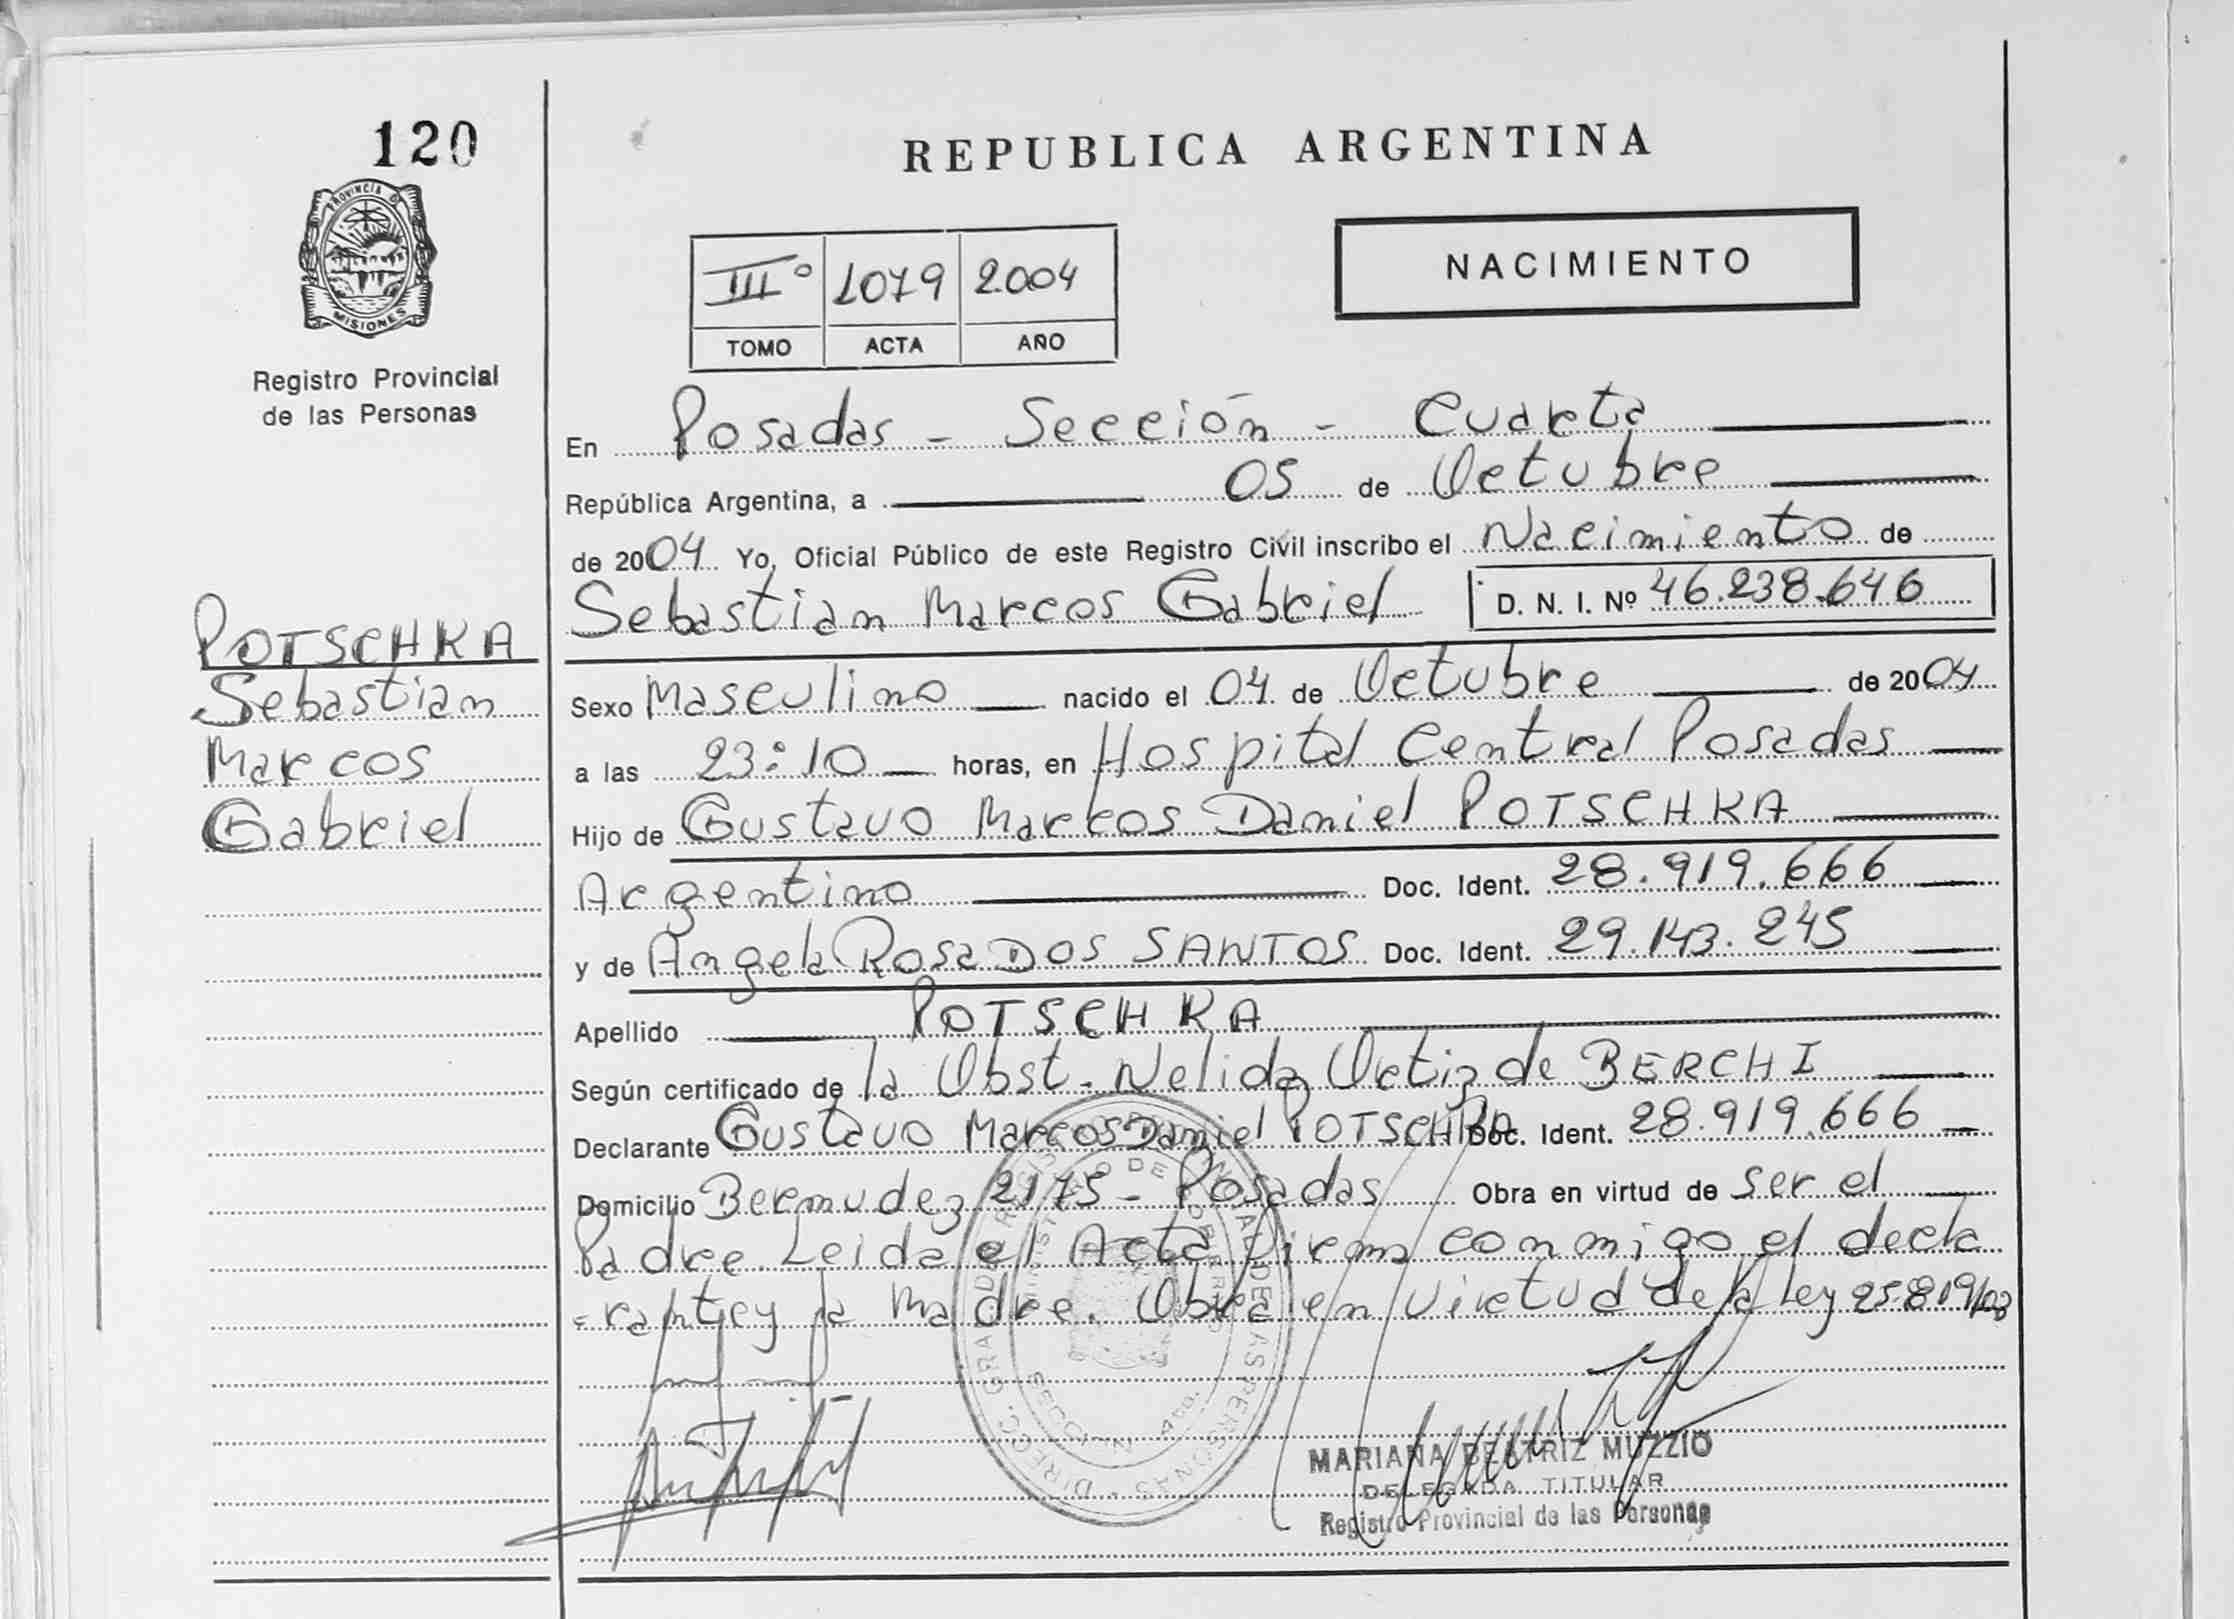 120
PROVINCIA DE
MISIONES
Registro Provincial
de las Personas
REPUBLICA ARGENTINA
NACIMIENTO
IIIº 1079 2004
TOMO ACTA AÑO
En Posadas - Sección - Cuarta
República Argentina, a 05 de Octubre
de 2004 Yo, Oficial Público de este Registro Civil inscribo el Nacimiento de
Sebastian Marcos Gabriel D. N. I. Nº 46.238.646
POTSCHKA
Sebastian
Marcos
Gabriel
Sexo Masculino nacido el 04 de Octubre de 2004
a las 23:10 horas, en Hospital Central Posadas
Hijo de Gustavo Marcos Daniel POTSCHKA
Argentino Doc. Ident. 28.919.666
y de Angela Rosa DOS SANTOS Doc. Ident. 29.143.245
Apellido POTSCHKA
Según certificado de la Obst. Nelida Ortiz de BERCHI
Declarante Gustavo Marcos Daniel POTSCHKA Doc. Ident. 28.919.666
Domicilio Bermudez 2175 - Posadas Obra en virtud de ser el
Padre. Leida el Acta Firma conmigo el decla
=rante y la Madre. Obra en Virtud de la ley 25819/03
MARIANA BEATRIZ MUZZIO
DELEGADA TITULAR
Registro Provincial de las Personas